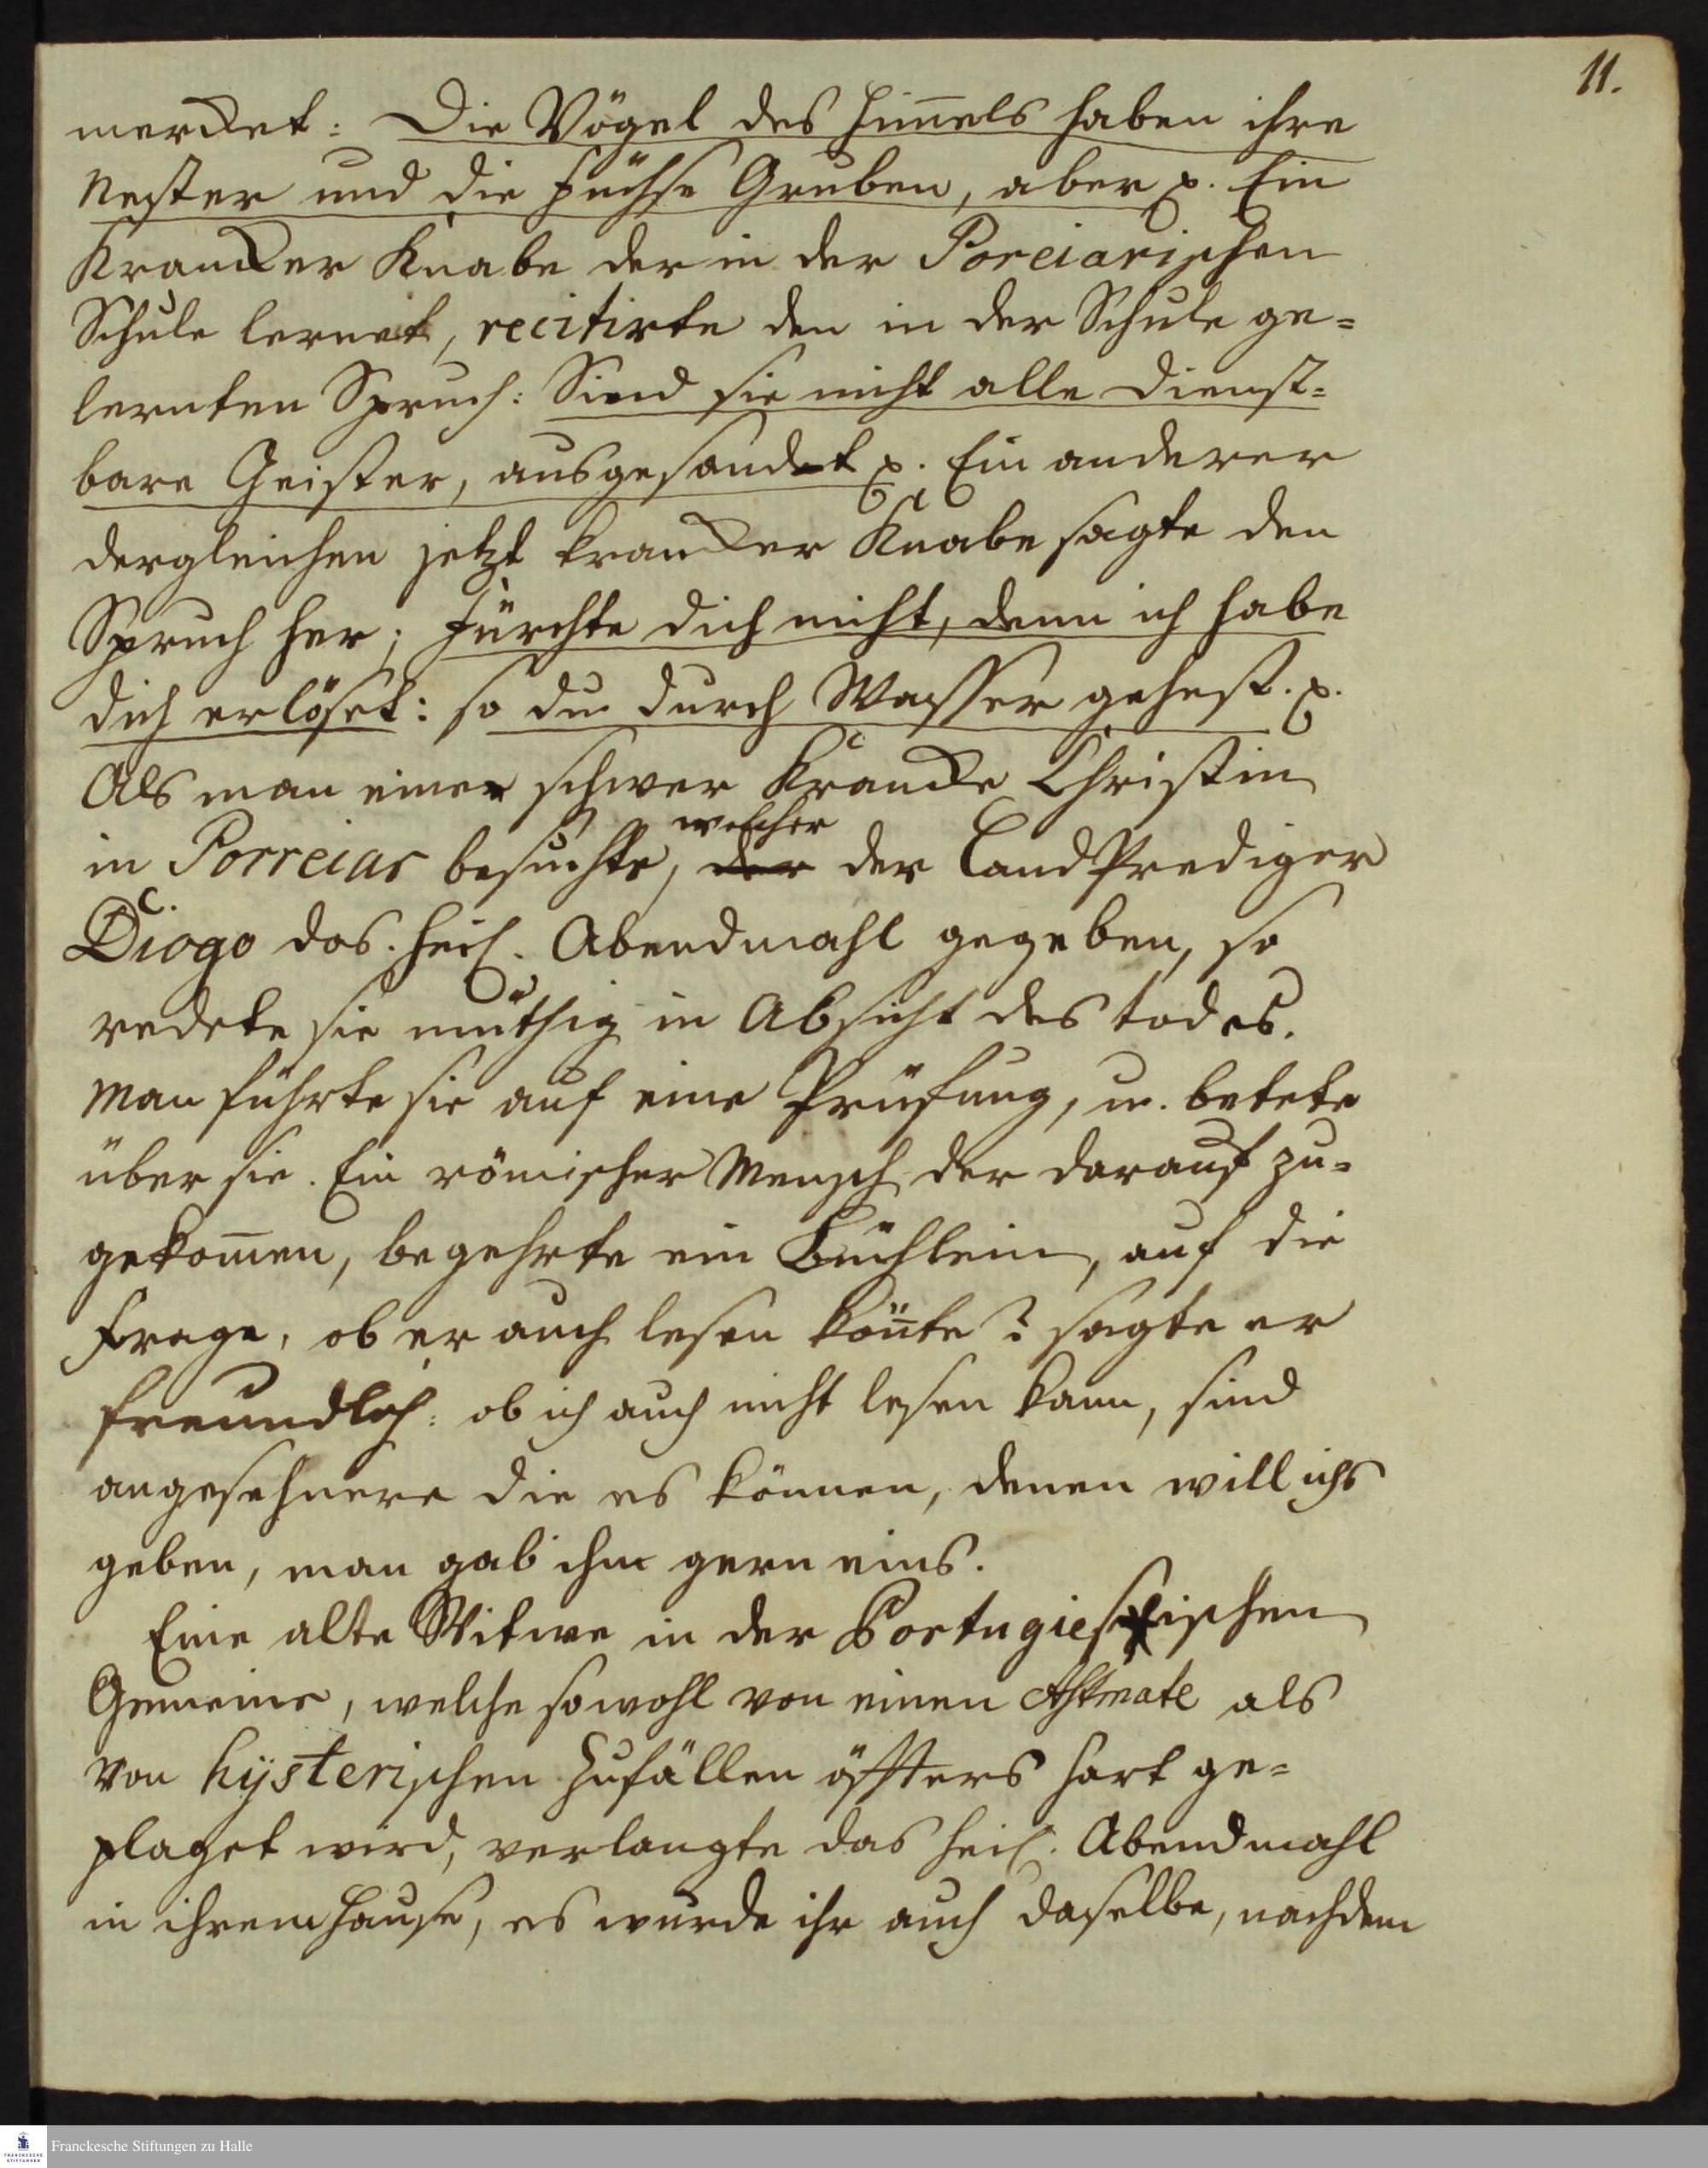 11.
mercket: Die Vögel des Him̅els haben ihre
Nester und die Füchse Gruben, aber p. Ein
Krancker Knabe der in der Poreiarischen
Schule lernet, recitirte den in der Schule ge=
lernten Spruch: Sind sie nicht alle dienst=
bare Geister, ausgesandt p. Ein anderer
dergleichen jetzt krancker Knabe sagte den
Spruch her; Fürchte dich nicht, denn ich habe
dich erlöset: so du durch Wasser gehest. p.
Als man eine schwer Krancke Christin
welcher
in Porreiar besuchte, der der LandPrediger
Diogo das heil. Abendmahl gegeben, so
redete sie muthig in Absicht des todes.
Man führte sie auf eine Prüfung, u. betete
über sie. Ein römischer Mensch der darauf zu=
gekom̅en, begehrte ein Büchlein, auf die
Frage, ob er auch lesen kön̅te? sagte er
freundlich: ob ich auch nicht lesen kann, sind
angesehnere die es können, denen will ichs
geben, man gab ihm gern eins.
Eine alte Witwe in der Portugiesischen
Gemeine, welche sowohl von einen Asthmate als
von hÿsterischen Zufällen öffters hart ge=
plaget wird, verlangte das heil. Abendmahl
in ihrem Hause, es wurde ihr auch daselbe, nachdem
Franckesche Stiftungen zu Halle
FRANCKESCHE
STIFTUNGEN